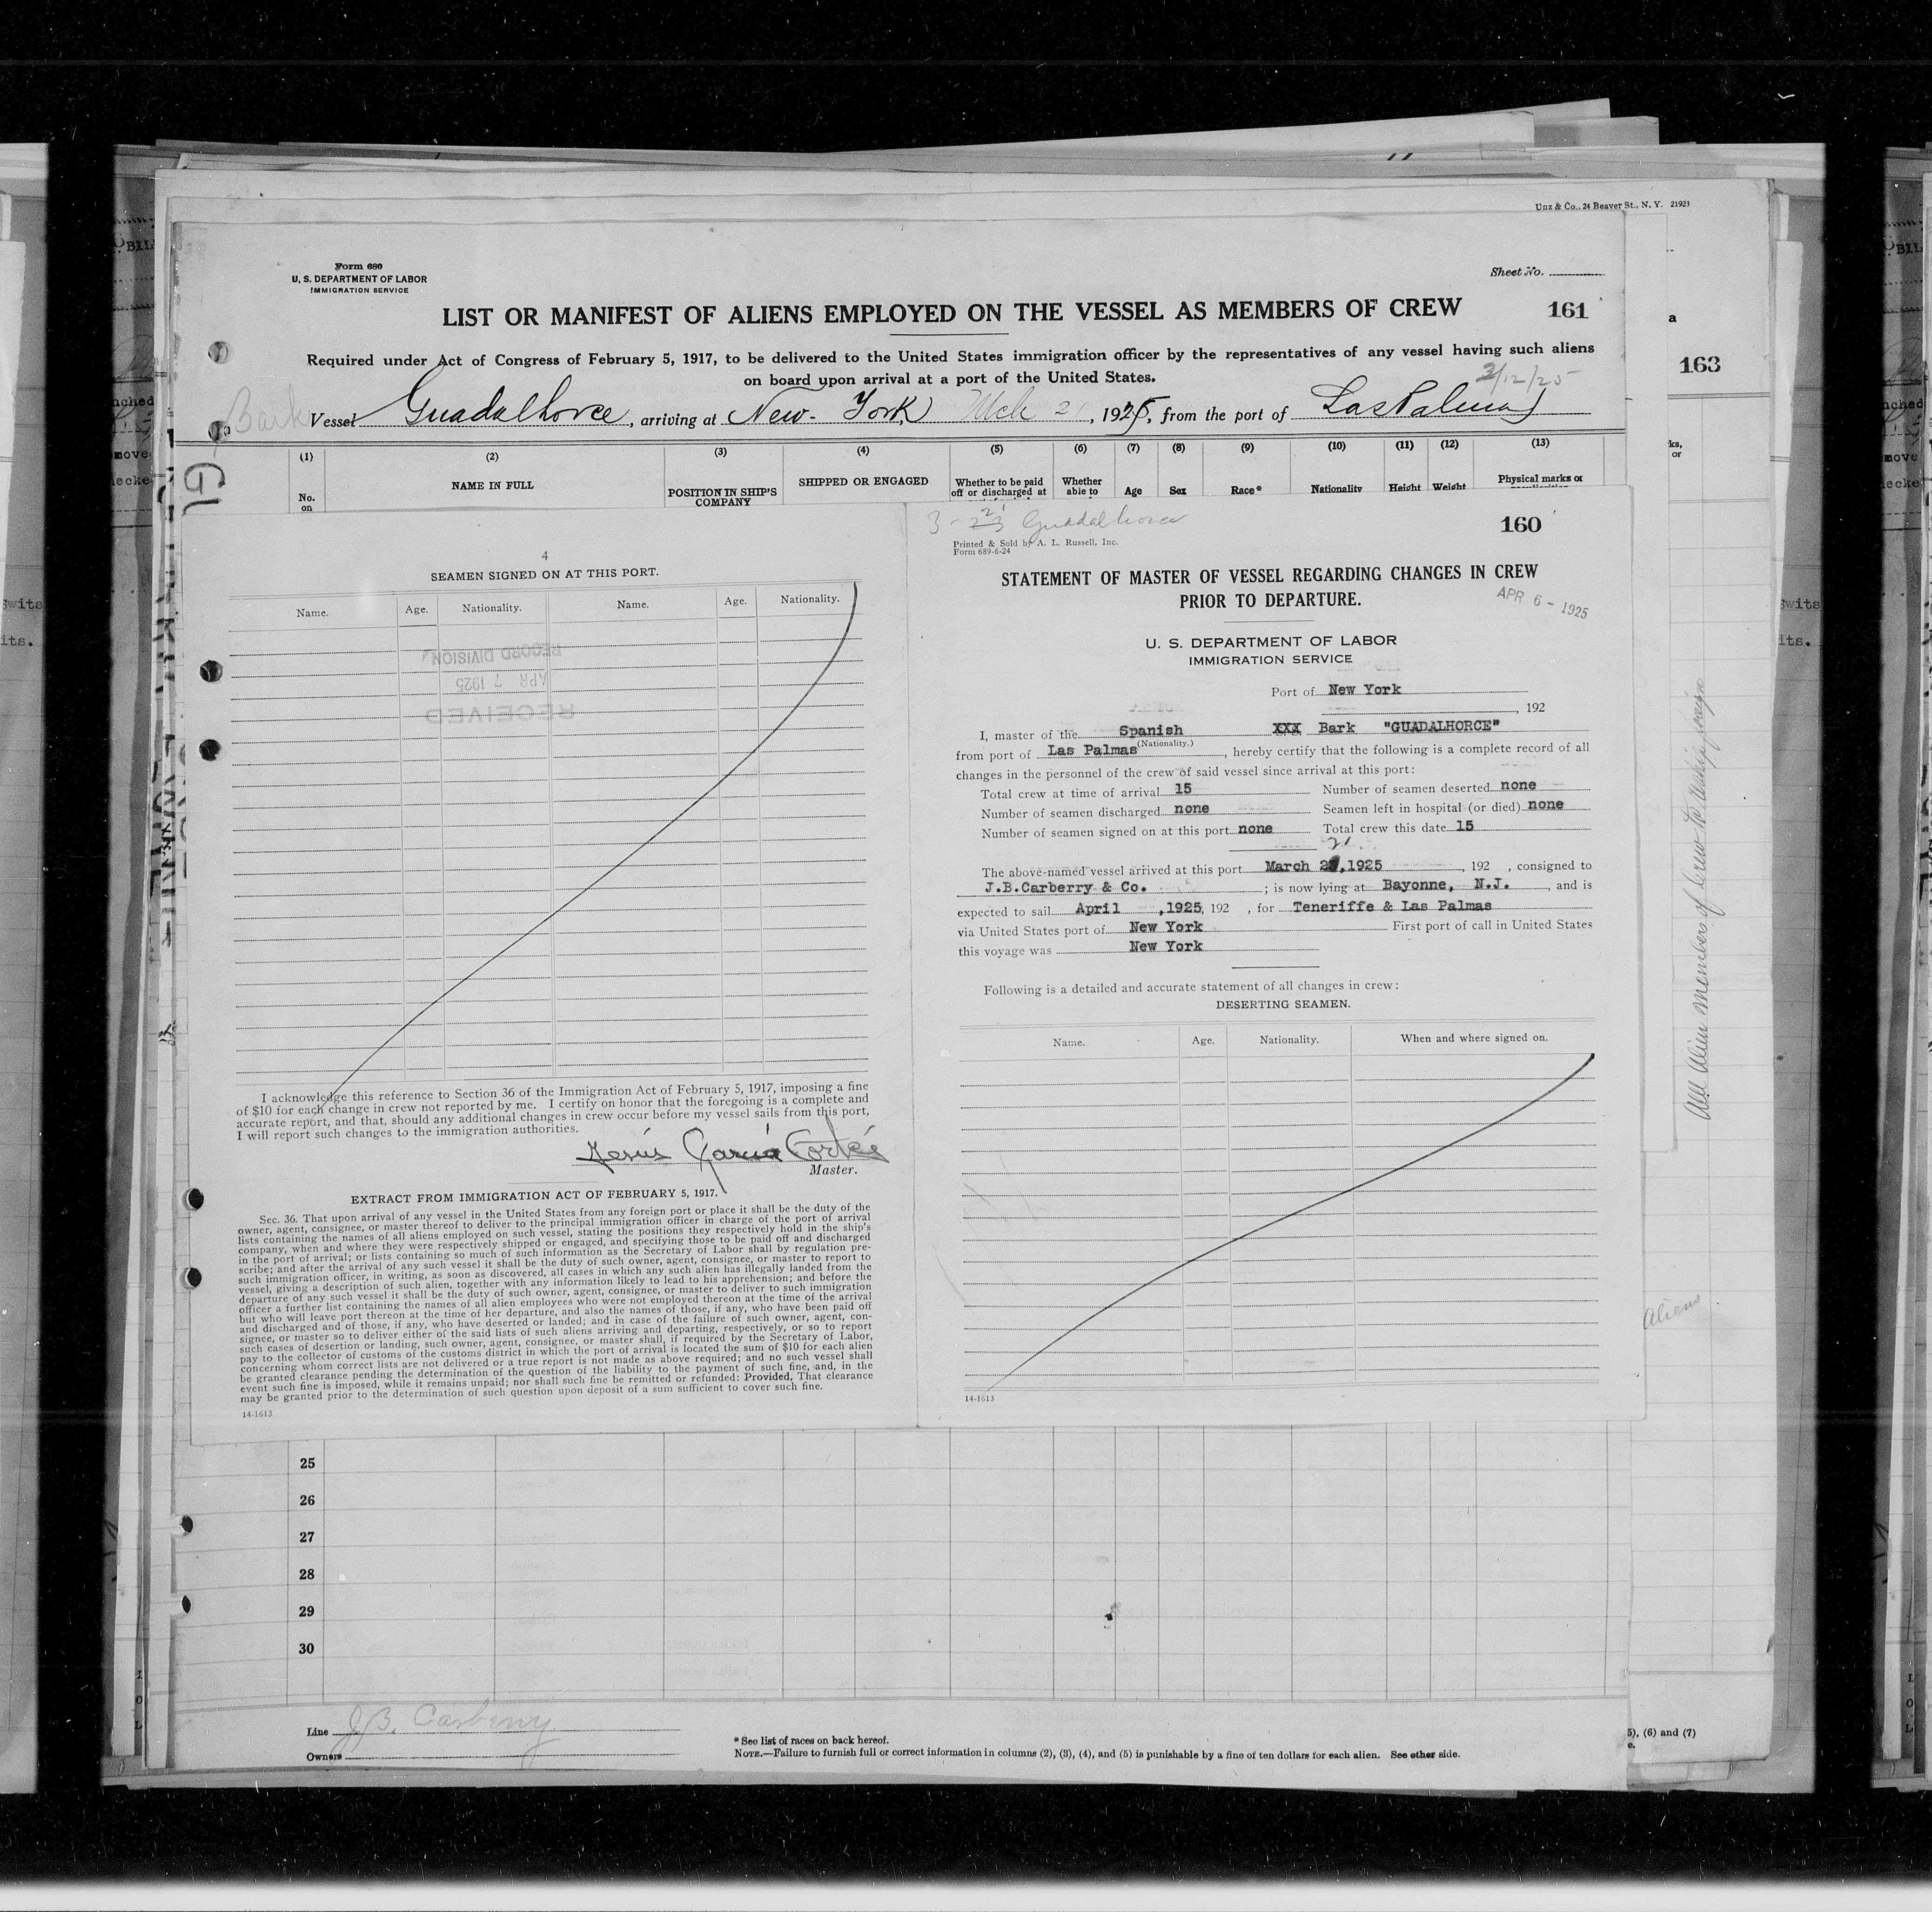 Unz & Co., 24 Beaver St., N. Y. 21923
Form 680
U. S. DEPARTMENT OF LABOR
IMMIGRATION SERVICE
Sheet No.
LIST OR MANIFEST OF ALIENS EMPLOYED ON THE VESSEL AS MEMBERS OF CREW
161
a
163
Required under Act of Congress of February 5, 1917, to be delivered to the United States immigration officer by the representatives of any vessel having such aliens
on board upon arrival at a port of the United States.
3/12/25
Bark Vessel Guadalhorce, arriving at New-York, Mch 21, 1925, from the port of Las Palmas
(1) (2) (3) (4) (5) (6) (7) (8) (9) (10) (11) (12) (13)
No. on
NAME IN FULL
POSITION IN SHIP'S COMPANY
SHIPPED OR ENGAGED
Whether to be paid off or discharged at
Whether able to
Age
Sex
Race*
Nationality
Height
Weight
Physical marks or
ks,
or
4
SEAMEN SIGNED ON AT THIS PORT.
Name. Age. Nationality. Name. Age. Nationality.
RECORD DIVISION
APR 7 1925
RECEIVED
I acknowledge this reference to Section 36 of the Immigration Act of February 5, 1917, imposing a fine
of $10 for each change in crew not reported by me. I certify on honor that the foregoing is a complete and
accurate report, and that, should any additional changes in crew occur before my vessel sails from this port,
I will report such changes to the immigration authorities.
Jesús García
Master.
EXTRACT FROM IMMIGRATION ACT OF FEBRUARY 5, 1917.
Sec. 36. That upon arrival of any vessel in the United States from any foreign port or place it shall be the duty of the
owner, agent, consignee, or master thereof to deliver to the principal immigration officer in charge of the port of arrival
lists containing the names of all aliens employed on such vessel, stating the positions they respectively hold in the ship's
company, when and where they were respectively shipped or engaged, and specifying those to be paid off and discharged
in the port of arrival; or lists containing so much of such information as the Secretary of Labor shall by regulation pre-
scribe; and after the arrival of any such vessel it shall be the duty of such owner, agent, consignee, or master to report to
such immigration officer, in writing, as soon as discovered, all cases in which any such alien has illegally landed from the
vessel, giving a description of such alien, together with any information likely to lead to his apprehension; and before the
departure of any such vessel it shall be the duty of such owner, agent, consignee, or master to deliver to such immigration
officer a further list containing the names of all alien employees who were not employed thereon at the time of the arrival
but who will leave port thereon at the time of her departure, and also the names of those, if any, who have been paid off
and discharged and of those, if any, who have deserted or landed; and in case of the failure of such owner, agent, con-
signee, or master so to deliver either of the said lists of such aliens arriving and departing, respectively, or so to report
such cases of desertion or landing, such owner, agent, consignee, or master shall, if required by the Secretary of Labor,
pay to the collector of customs of the customs district in which the port of arrival is located the sum of $10 for each alien
concerning whom correct lists are not delivered or a true report is not made as above required; and no such vessel shall
be granted clearance pending the determination of the question of the liability to the payment of such fine, and, in the
event such fine is imposed, while it remains unpaid; nor shall such fine be remitted or refunded: Provided, That clearance
may be granted prior to the determination of such question upon deposit of a sum sufficient to cover such fine.
14-1613
3-23 Guadalhorce
160
Printed & Sold by A. L. Russell, Inc.
Form 689-6-24
STATEMENT OF MASTER OF VESSEL REGARDING CHANGES IN CREW
PRIOR TO DEPARTURE.
APR 6 - 1925
U. S. DEPARTMENT OF LABOR
IMMIGRATION SERVICE
Port of New York
, 192
I, master of the Spanish XXX Bark "GUADALHORCE"
(Nationality.)
from port of Las Palmas, hereby certify that the following is a complete record of all
changes in the personnel of the crew of said vessel since arrival at this port:
Total crew at time of arrival 15 Number of seamen deserted none
Number of seamen discharged none Seamen left in hospital (or died) none
Number of seamen signed on at this port none Total crew this date 15
21
The above-named vessel arrived at this port March 2,1925, 192 , consigned to
J.B.Carberry & Co. ; is now lying at Bayonne, N.J., and is
expected to sail April ,1925, 192 , for Teneriffe & Las Palmas
via United States port of New York First port of call in United States
this voyage was New York
Following is a detailed and accurate statement of all changes in crew:
DESERTING SEAMEN.
Name. Age. Nationality. When and where signed on.
14-1613
All Alien members of crew to reship foreign
Aliens
25
26
27
28
29
30
Line J.B. Carberry
Owners
* See list of races on back hereof.
NOTE.—Failure to furnish full or correct information in columns (2), (3), (4), and (5) is punishable by a fine of ten dollars for each alien. See other side.
5), (6) and (7)
e.